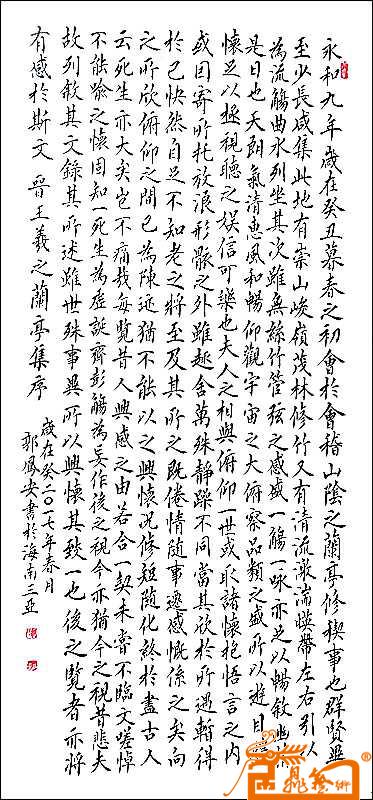 永和九年歲在癸丑暮春之初會於會稽山陰之蘭亭修禊事也群賢畢
至少長咸集此地有崇山峻嶺茂林修竹又有清流激湍映帶左右引以
為流觴曲水列坐其次雖無絲竹管弦之盛一觴一詠亦足以暢敘幽情
是日也天朗氣清惠風和暢仰觀宇宙之大俯察品類之盛所以遊目
懷足以極視聽之娛信可樂也夫人之相與俯仰一世或取諸懷抱悟言之內
或因寄所托放浪形骸之外雖趣舍萬殊靜躁不同當其欣於所遇暫得
於己快然自足不知老之將至及其所之既倦情隨事遷感慨係之矣向
之所欣俯仰之間已為陳迹猶不能以之興懷況修短隨化終於盡古人
云死生亦大矣豈不痛哉每覽昔人興感之由若合一契未嘗不臨文嗟悼
不能喻之懷固知一死生為虛誕齊彭殤為妄作後之視今亦猶今之視昔悲夫
故列敘其文錄其所述雖世殊事異所以興懷其致一也後之覽者亦將
有感於斯文 晉王羲之蘭亭集序
歲在癸二〇一七年春月
郭鳳安書於海南三亞